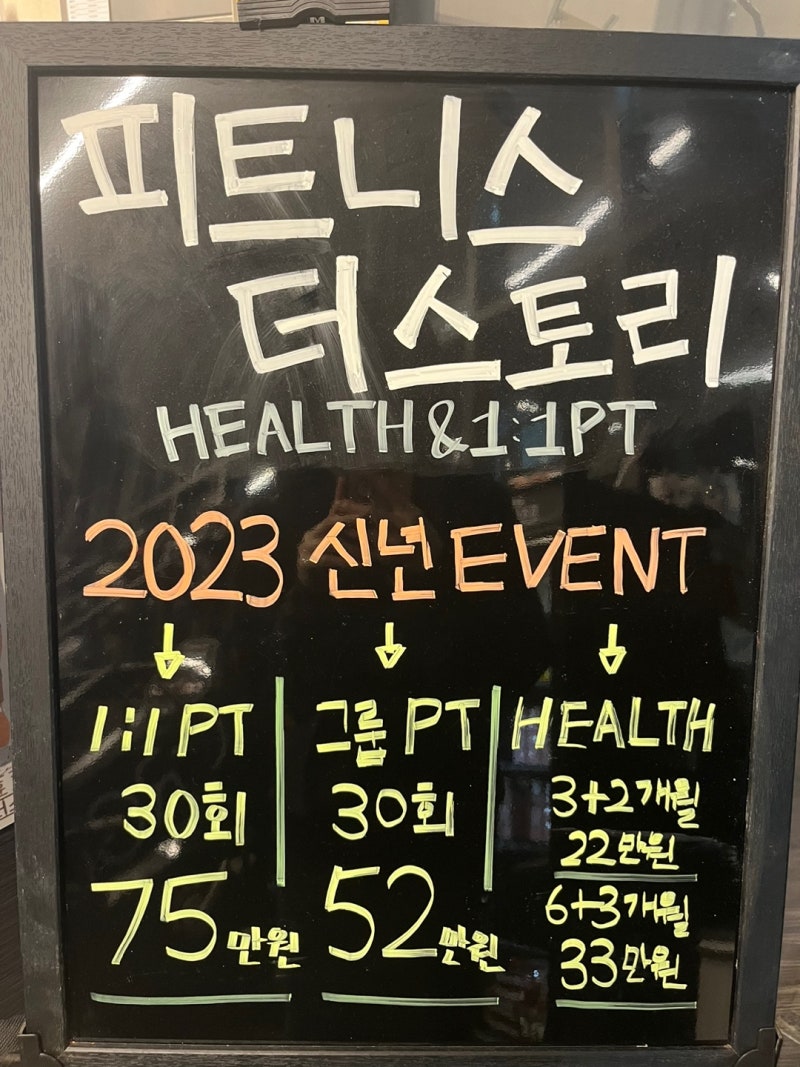 피트니스
더스토리
HEALTH & 1:1PT
2023 신년 EVENT
1:1 PT
30회
75만원
그룹 PT
30회
52만원
HEALTH
3+2개월
22만원
6+3개월
33만원